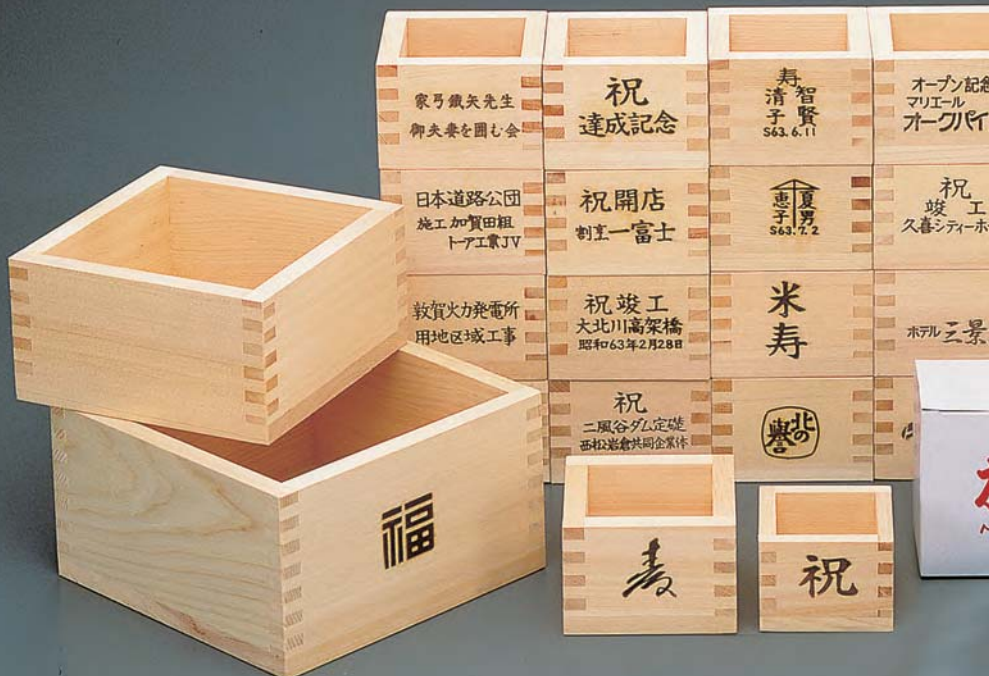 家弓鐡矢先生
御夫妻を囲む会
祝
達成記念
寿
清子
智賢
S63.6.11
オープン記念
マリエール
オークパイ
日本道路公団
施工 加賀田組
トーア工業JV
祝開店
割烹 一富士
恵子
夏男
S63.7.2
祝
竣工
久喜シティーホ
敦賀火力発電所
用地区域工事
祝竣工
大北川高架橋
昭和63年2月28日
米
寿
ホテル 三景
祝
二風谷ダム定礎
西松岩倉共同企業体
北の
誉
福
祝